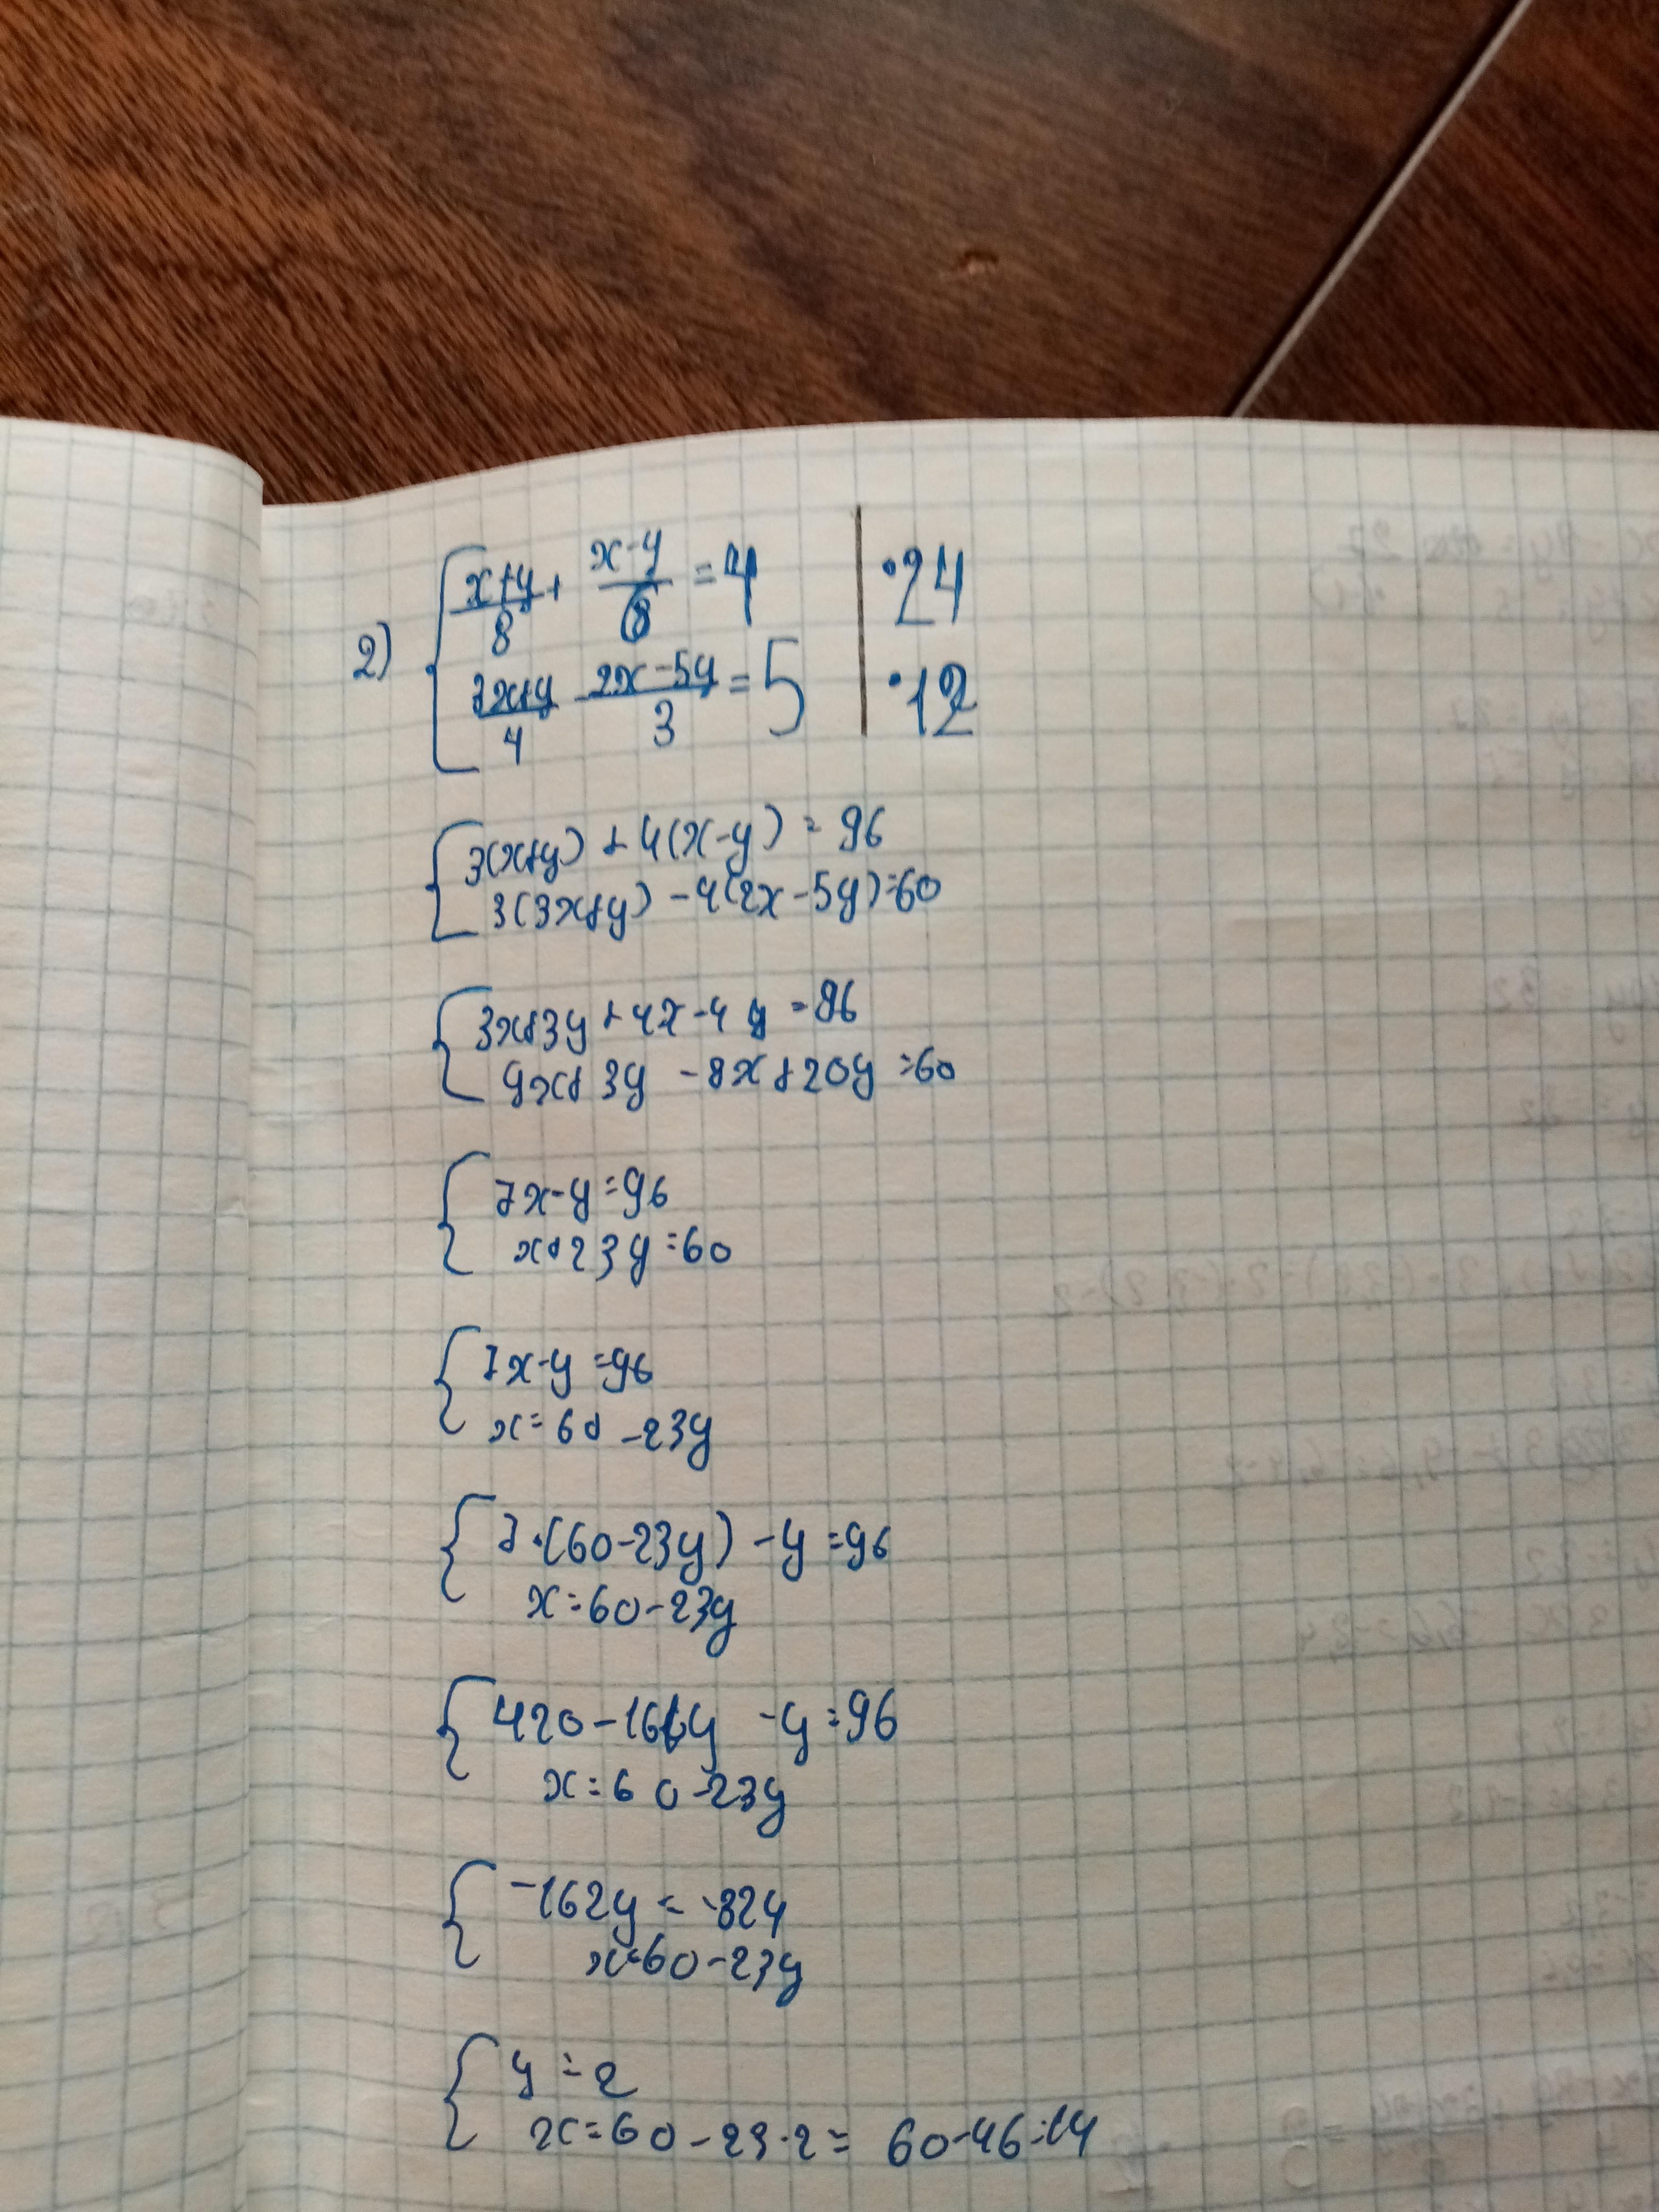 2) { (x+y)/8 + (x-y)/6 = 4 | ·24
(3x+y)/4 - (2x-5y)/3 = 5 | ·12
{ 3(x+y) + 4(x-y) = 96
3(3x+y) - 4(2x-5y) = 60
{ 3x+3y+4x-4y = 96
9x+3y-8x+20y = 60
{ 7x-y=96
x+23y=60
{ 7x-y=96
x=60-23y
{ 7·(60-23y)-y=96
x=60-23y
{ 420-161y-y=96
x=60-23y
{ -162y=-324
x=60-23y
{ y=2
x=60-23·2=60-46=14